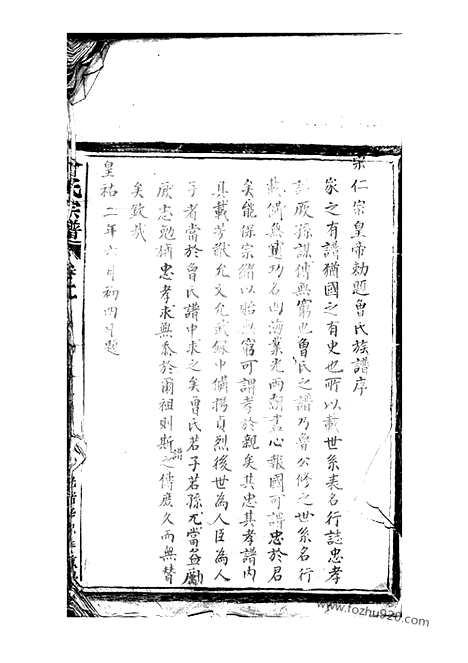 宗仁宗皇帝勅題曾氏族譜序
家之有譜猶國之有史也所以載世系表名行誌忠孝
厥孫謀傳無窮也曾氏之譜乃魯公修之世系名行
載備無遺功名向海業光兩朝盡心報國可謂忠於君
矣能保宗緒以貽無窮可謂孝於親矣其忠其孝譜內
其載芳徽允文允武緣中備揚貞烈後世為人臣為人
子者當於曾氏譜中求之矣曾氏若子若孫尤當益勵
厥忠勉獨忠孝求無忝於爾祖則斯譜之傳庶久而無替
矣致哉
皇祐二年六月初四日題
曾氏宗譜
卷七
www.fozhu920.com